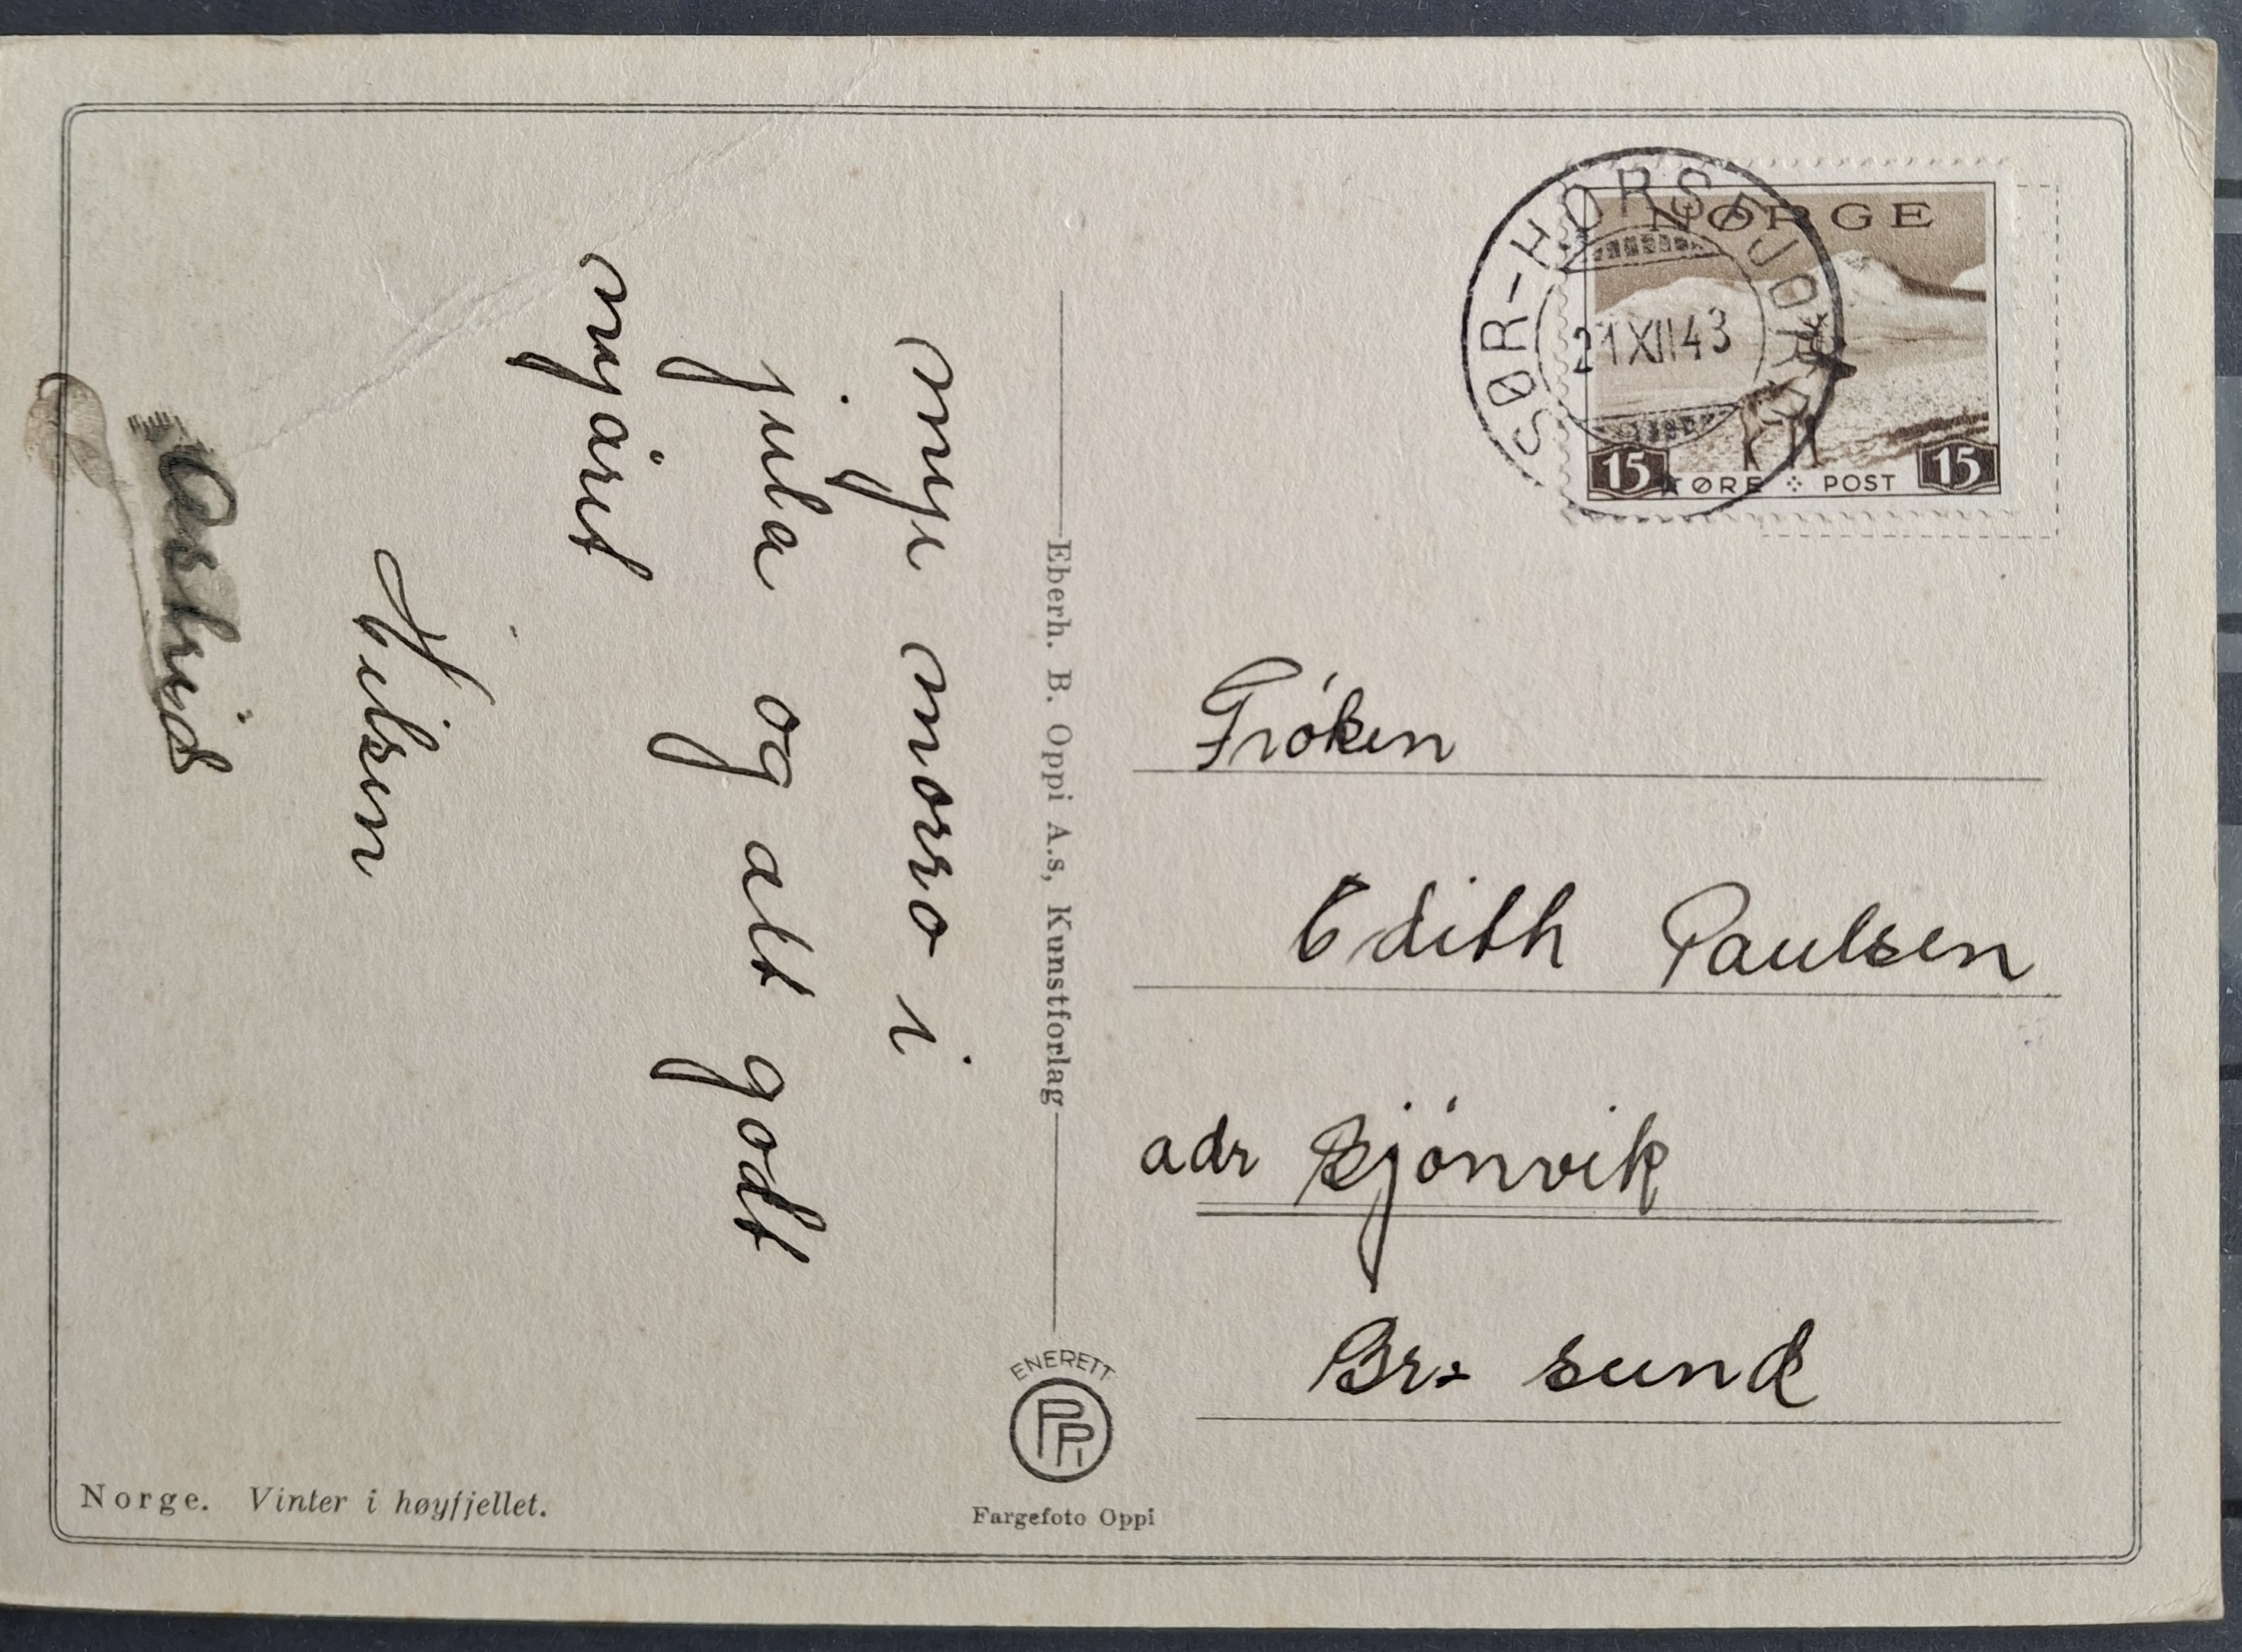 mye morro i
jula og alt godt
nyåret
Hilsen
Aastrid
Eberh. B. Oppi A.s, Kunstforlag
SØR-HORSFJORD
21 XII 43
NORGE
15 ØRE POST 15
Fróken
Edith Paulsen
adr Bjónvik
Br. sund
ENERETT
PPI
Fargefoto Oppi
Norge. Vinter i høyfjellet.